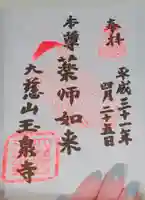 奉拝
平成三十一年
四月二十五日
本尊
薬師如来
大慈山玉泉寺